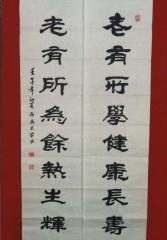 老有所學健康長壽
老有所為餘熱生輝